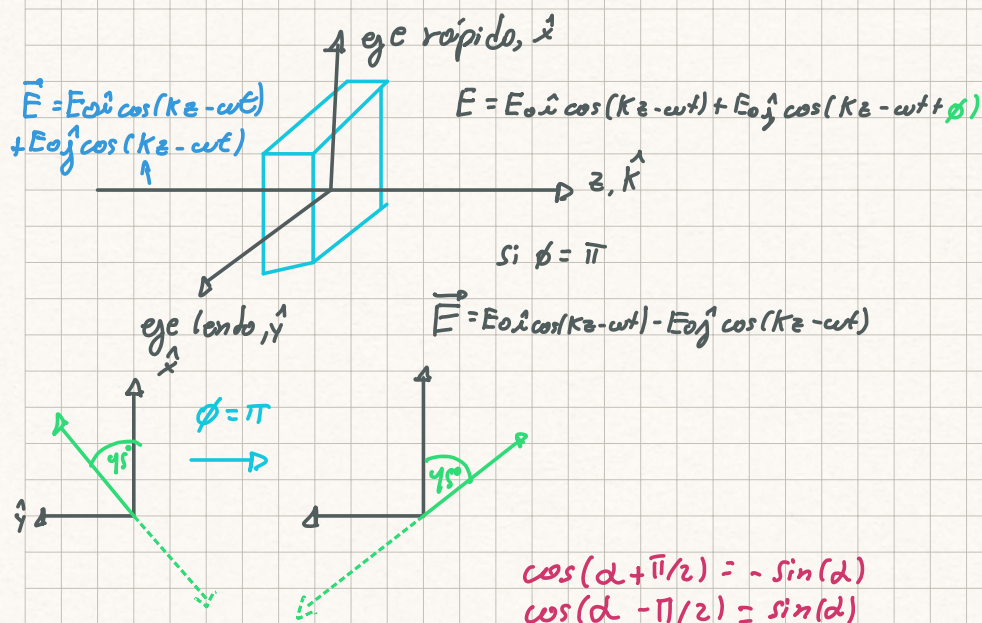 eje rapido, x̂
E⃗ = E₀î cos(Kz - ωt)
+ E₀ĵ cos(Kz - ωt)
E = E₀î cos(Kz - ωt) + E₀ĵ cos(Kz - ωt + φ)
z, k̂
si φ = π
eje lendo, ŷ
E⃗ = E₀î cos(Kz - ωt) - E₀ĵ cos(Kz - ωt)
x̂
φ = π
45°
45°
ŷ
cos(α + π/2) = - sin(α)
cos(α - π/2) = sin(α)